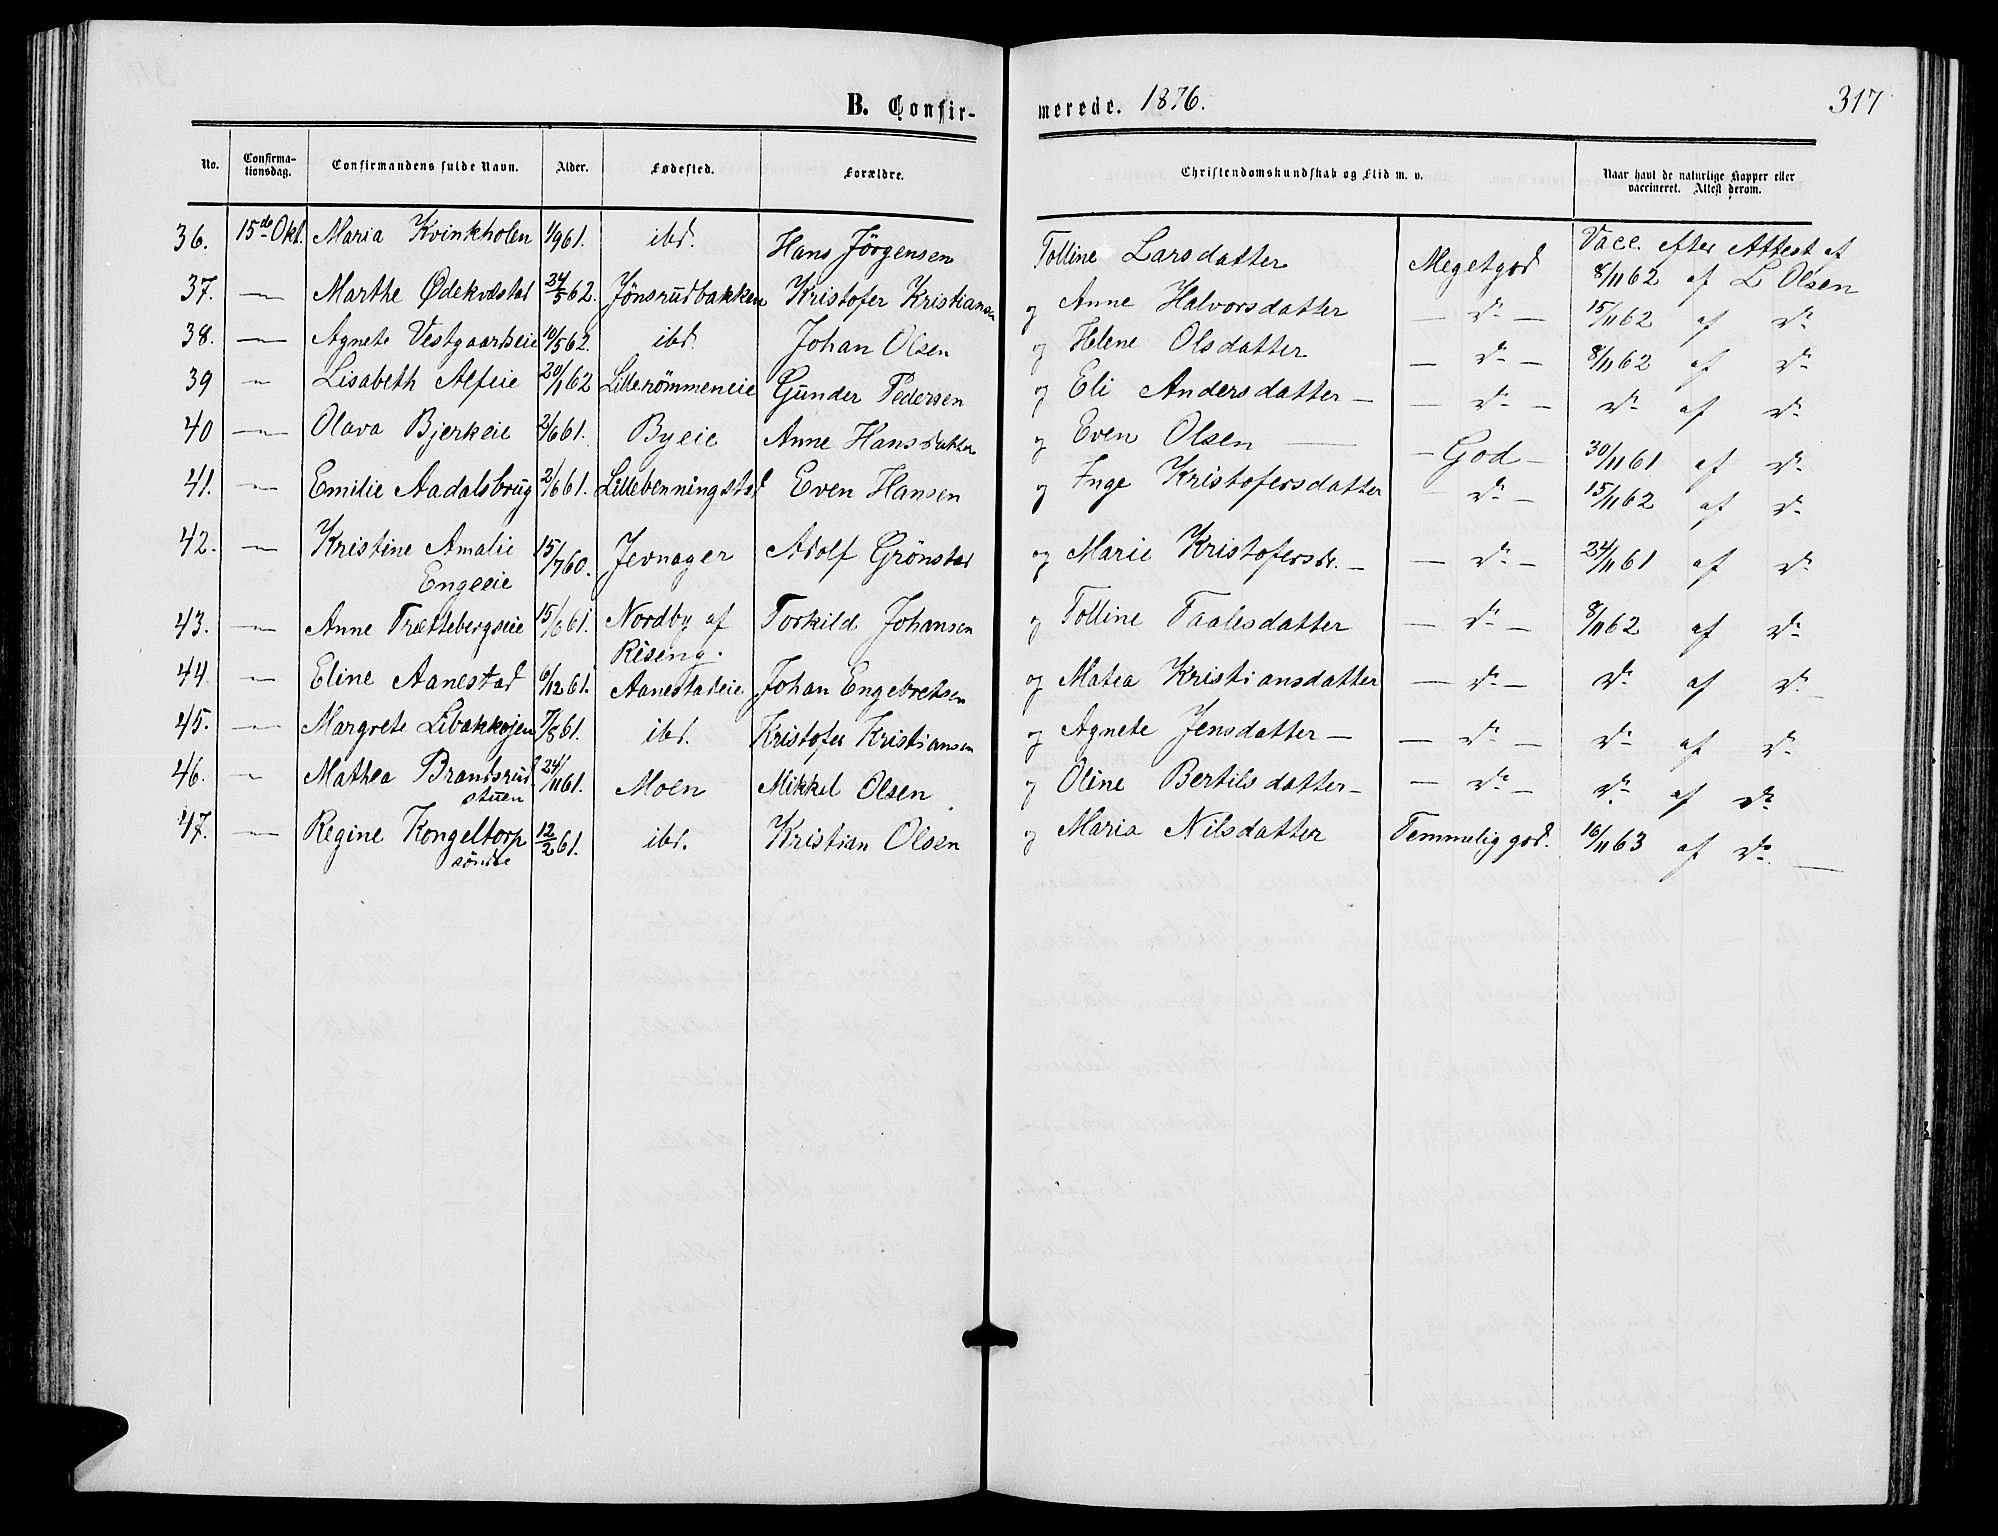 B. Confir-
merede. 1876.
317
No. Confirma-tionsdag. Confirmandens fulde Navn. Alder. Fødested. Forældre. Christendomskundskab og Flid m. v. Naar havt de naturlige Kopper eller vaccineret. Attest derom.
36. 15de Okt. Maria Kvinkholen 1/9 61. ibd. Hans Jörgensen Tolline Larsdatter Megetgod Vacc. efter Attest af 8/11 62 af L Olsen
37. — Marthe Ødekvæstad 24/5 62. Jönsrudbakken Kristofer Kristiansen og Anne Halvorsdatter — do — 15/11 62 af do
38. — Agnete Vestgaardeie 10/5 62. ibd. Johan Olsen og Helene Olsdatter — do — 8/11 62 af do
39 — Lisabeth Alfeie 20/1 62 Lillerömmeneie Gunder Pedersen og Eli Andersdatter — — do — do af do
40 — Olava Bjerkeie 2/6 61. Byeie Anne Hansdatter og Even Olsen — — God — 30/11 61 af do
41. — Emilie Aadalsbrug 2/6 61. Lillebenningstad Even Hansen og Inge Kristofersdatter — do — 15/11 62 af do
42. — Kristine Amalie 15/7 60. Jevnager Adolf Grönstad og Marie Kristofersd. — — do — 24/11 61 af do
Engeeie
43. — Anne Trættebergseie 15/6 61. Nordby af Torkild Johansen og Tolline Taalesdatter — do — 8/11 62 af do
Riseng.
44. — Eline Aanestad 6/12 61. Aanestadeie Johan Engebretsen og Matea Kristiansdatter — do — do af do
45. — Margrete Libakkojen 7/8 61. ibd. Kristofer Kristiansen og Agnete Jensdatter — — do — do af do
46. — Mathea Brandsrud 24/11 61. Moen Mikkel Olsen og Oline Bertilsdatter — — do — do af do
stuen
47. — Regine Kongeltorp 12/2 61. ibd. Kristian Olsen og Maria Nilsdatter Temmelig god. 16/11 63 af do —
söndre